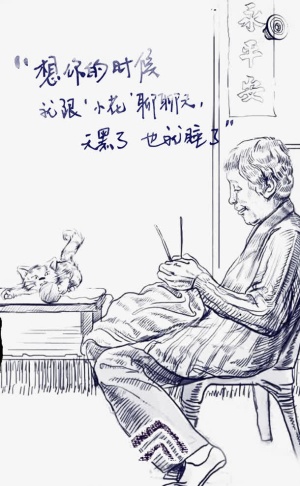 "想你的时候
我跟'小花'聊聊天,
天黑了 也就睡了"
永平安